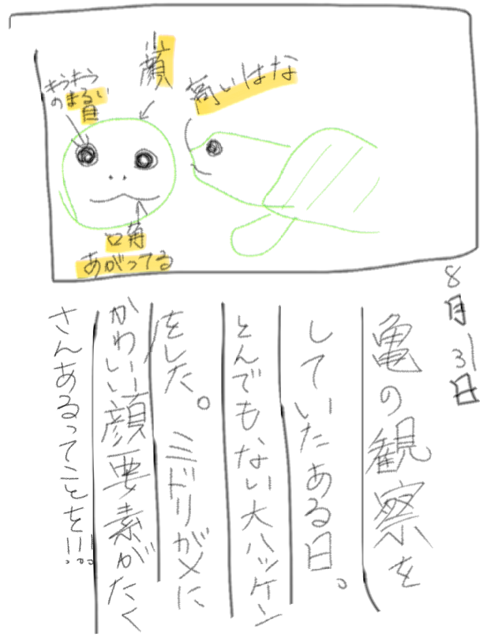 小顔
高いはな
きゅるきゅる
のまるい
目
口角
あがってる
8月31日
亀の観察を
していたある日。
とんでもない大ハッケン
をした。ミドリガメに
かわいい顔要素がたく
さんあるってことを!!!